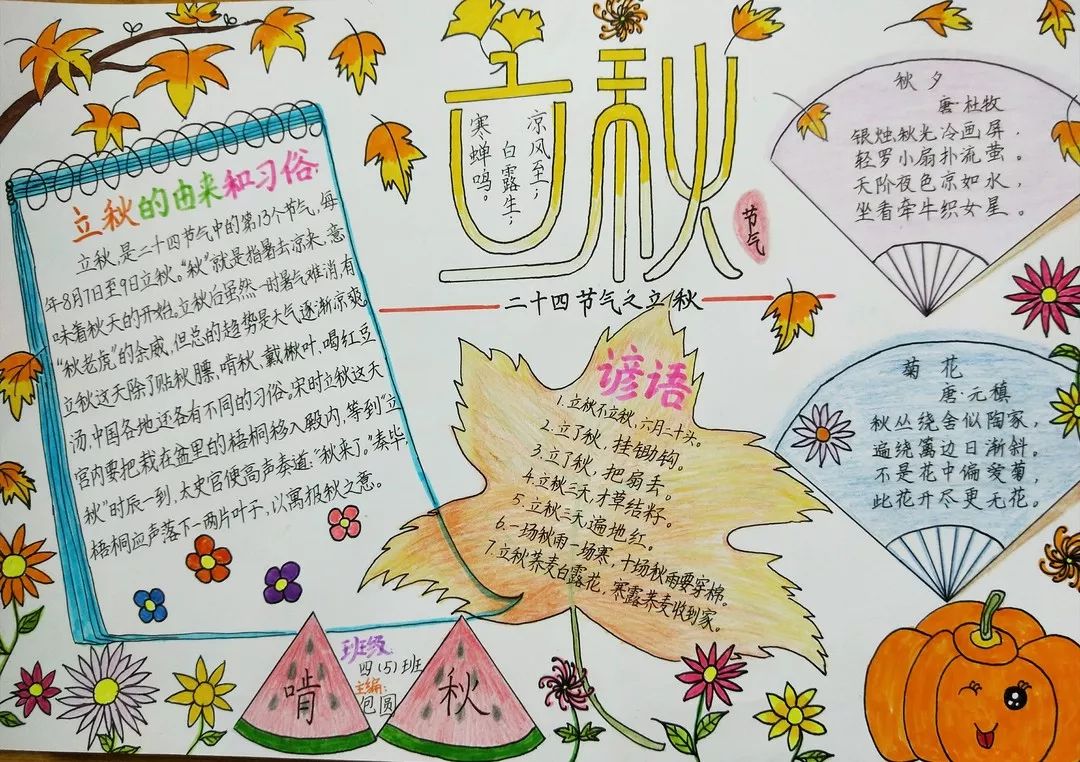 立秋
凉风至；
白露生；
寒蝉鸣。
节气
二十四节气之立秋
立秋的由来和习俗：
立秋，是二十四节气中的第13个节气，每
年8月7日至9日立秋。“秋”就是指暑去凉来，意
味着秋天的开始。立秋后虽然一时暑气难消有
“秋老虎”的余威，但总的趋势是天气逐渐凉爽。
立秋这天除了贴秋膘，啃秋，戴楸叶，喝红豆
汤，中国各地还各有不同的习俗。宋时立秋这天
宫内要把栽在盆里的梧桐移入殿内，等到“立
秋”时辰一到，太史官便高声奏道：“秋来了。”奏毕，
梧桐应声落下一两片叶子，以寓报秋之意。
谚语
1.立秋不立秋，六月二十头。
2.立了秋，挂锄钩。
3.立了秋，把扇丢。
4.立秋三天，寸草结籽。
5.立秋三天遍地红。
6.一场秋雨一场寒，十场秋雨要穿棉。
7.立秋荞麦白露花，寒露荞麦收到家。
秋夕
唐·杜牧
银烛秋光冷画屏，
轻罗小扇扑流萤。
天阶夜色凉如水，
坐看牵牛织女星。
菊花
唐·元稹
秋丛绕舍似陶家，
遍绕篱边日渐斜。
不是花中偏爱菊，
此花开尽更无花。
啃
秋
班级
四（5）班
主编：
包圆